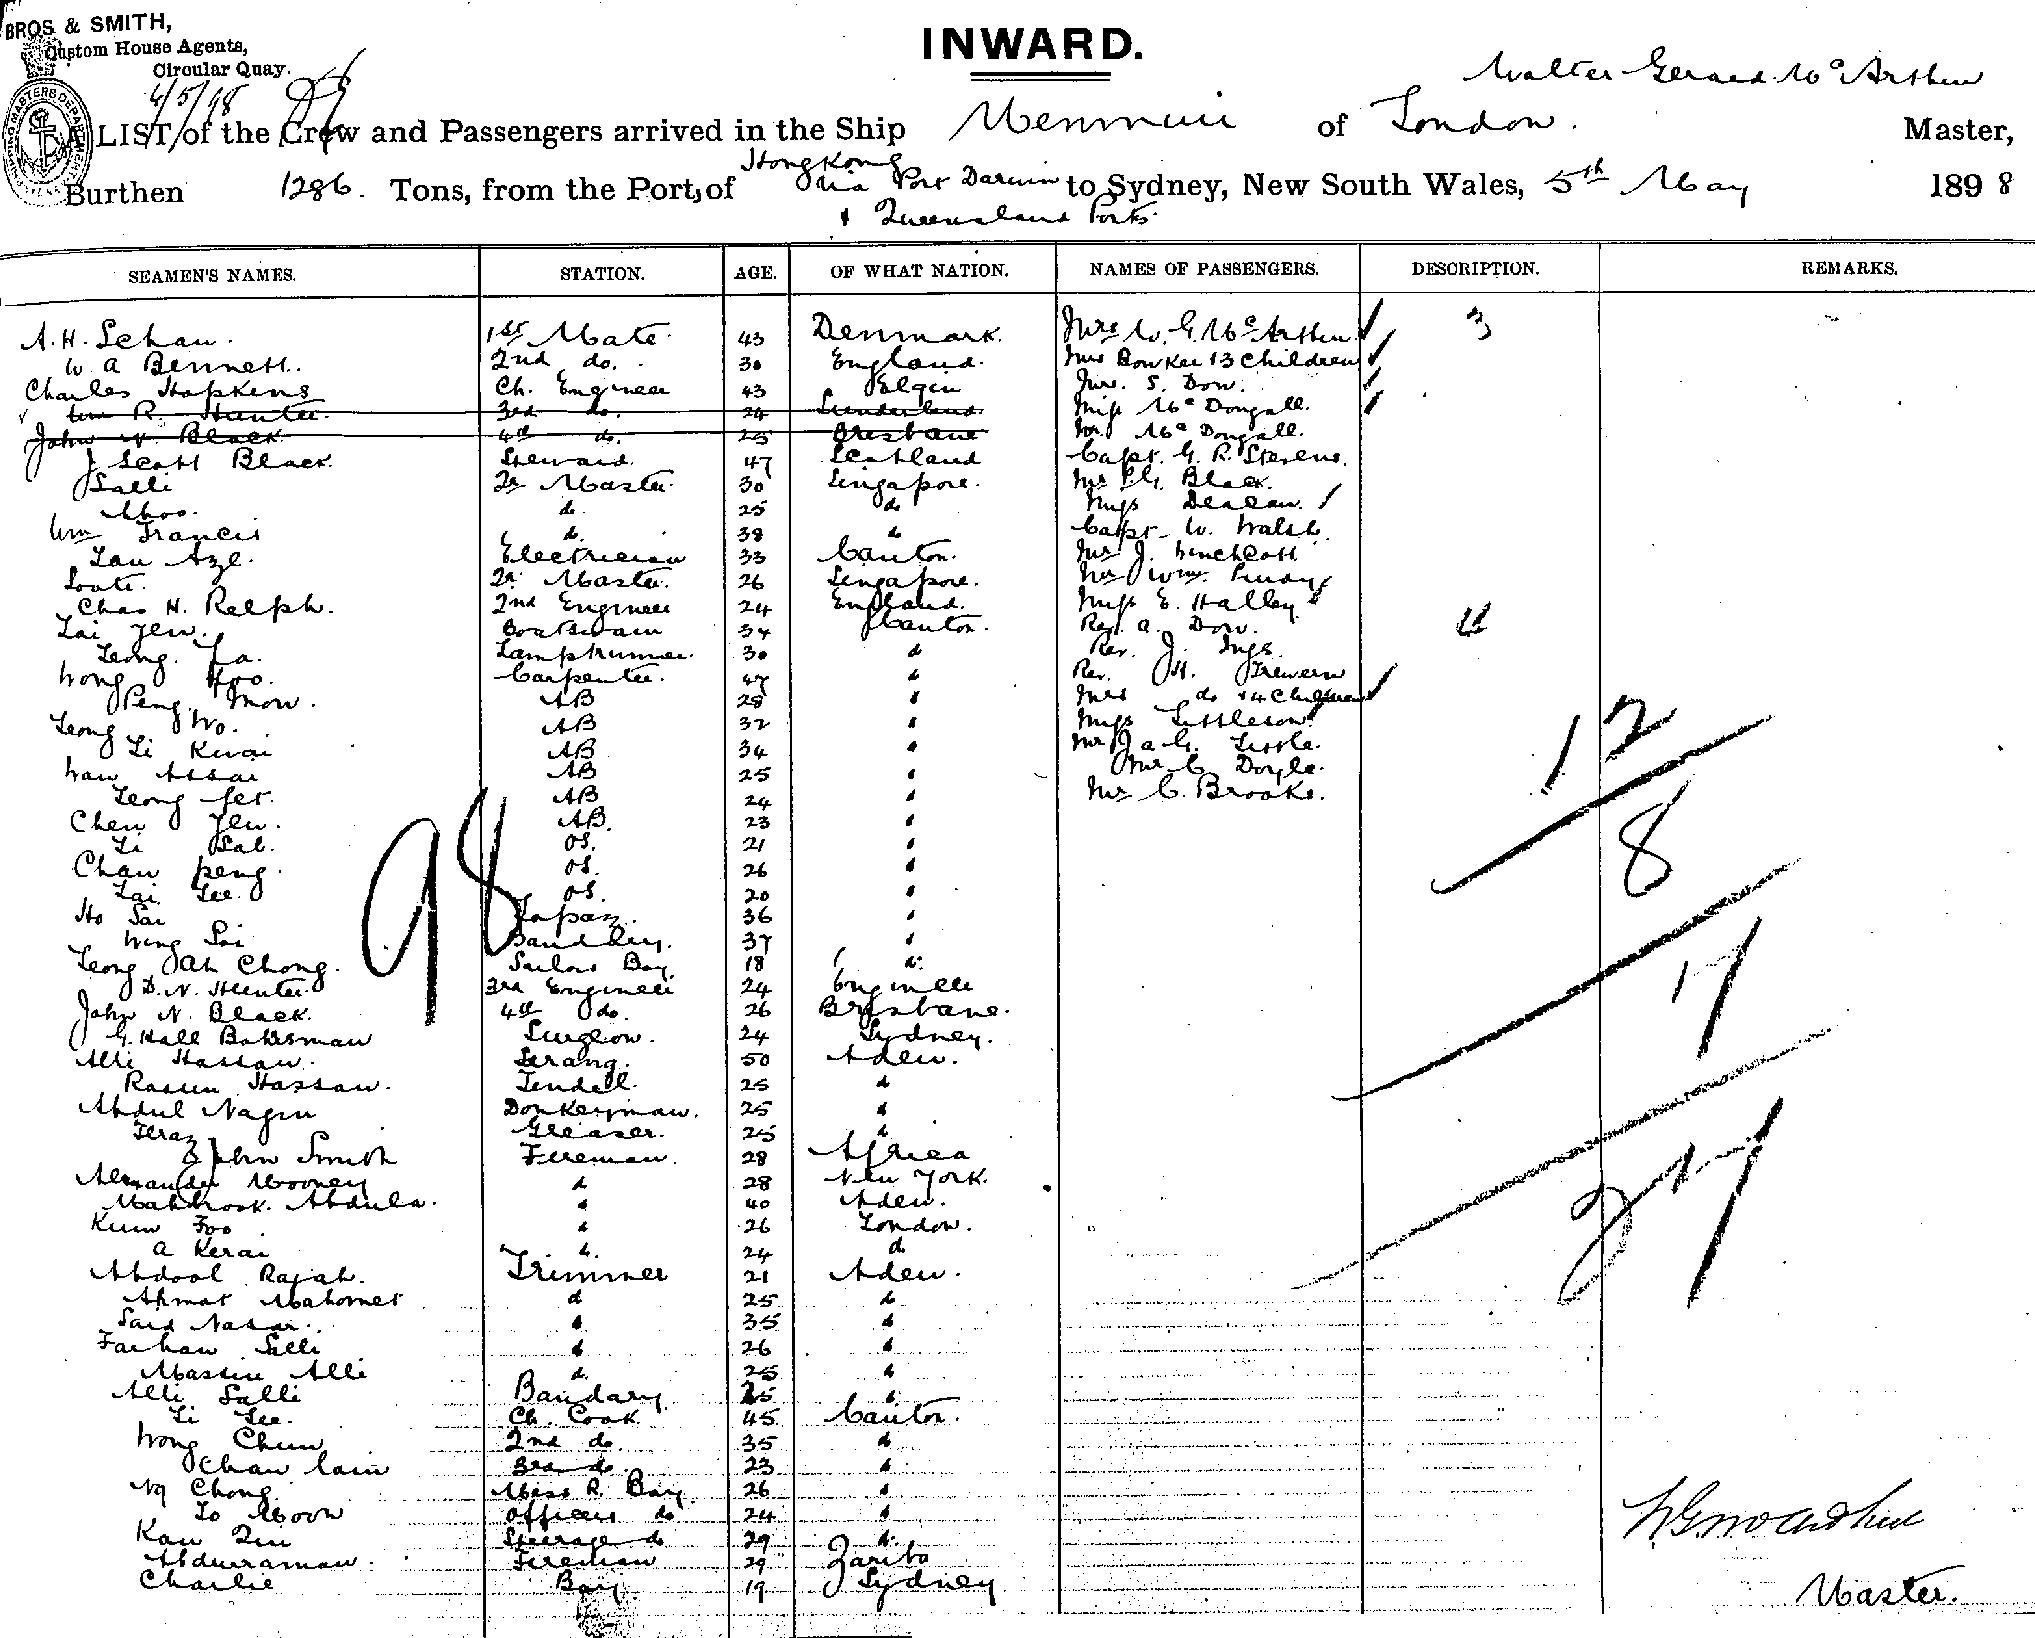 BROS & SMITH,
Custom House Agents,
Circular Quay.
6/5/98
INWARD.
Walter Gerard McArthur
A LIST of the Crew and Passengers arrived in the Ship Menmuir of London. Master,
Hong Kong
Burthen 1286. Tons, from the Port, of via Port Darwin to Sydney, New South Wales, 5th May 1898
& Queensland Ports.
SEAMEN'S NAMES. STATION. AGE. OF WHAT NATION. NAMES OF PASSENGERS. DESCRIPTION. REMARKS.
A. H. Schau. 1st Mate. 43 Denmark. Mrs W. G. McArthur 3
W. A Bennett. 2nd do. 30 England. Mrs Bowker & 3 Children
Charles Hopkins Ch. Engineer 43 Elgin Mrs. S. Dow.
Wm R. Hunter. 3rd do. 24 Sunderland Miss McDougall.
John N. Black 4th do. 25 Brisbane Mr McDougall.
J. Scott Black. Steward. 47 Scotland Capt. G. R. Stevens.
Salli Qr Master 30 Singapore. Mr Black.
do. 25 do Miss
Wm Francis do. 38 do Capt W. Walsh.
Electrician 33 Canton. Mr J.
Qr Master. 26 Singapore. Mr Wm.
Chas H. Ralph. 2nd Engineer 24 England. Miss E. Halley
Lai Yew. Boatswain 34 Canton. Rev. A. Dow. 11
Leong Ya. Lamptrimmer. 30 d Rev. J. Ings
Wong Hoo. Carpenter. 47 d Rev. H. Trewern
Peng Mow. AB 28 d Mrs do & 4 Children
Leong Wo. AB 32 d Miss Littleson
Li Kwai AB 34 d Mr J a G. Little.
Assai AB 25 d Mr C Doyle.
Leong AB 24 d Mr C. Brooks.
Chew Yew. AB. 23 d
Li Sab. OS. 21 d
Chan Peng. OS. 26 d
Lai See. OS. 20 d
Ho Sai 36 d
Wing Soi 37 d
Leong Ah Chong. Sailors Boy. 18 d.
D. N. Hunter. 3rd Engineer 24
John N. Black. 4th do. 26 Brisbane.
G. Hall Surgeon. 24 Sydney.
Alli Hassan. Serang. 50 Aden.
Hassan. Tendell. 25 d
Abdul Donkeyman. 25 d
Feraz Greaser. 25 d
John Smith Fireman. 28 Africa
Alexander Mooney d 28 New York.
Mahbrook Abdula. d 40 Aden.
Kum Foo d 26 London.
A Kerai d. 24 d
Abdool Rajah. Trimmer 21 Aden.
Ahmat Mahomet d 25 d
Said Nasar. d 35 d
Farhan Salli d 26 d
Alli d. 25 d
Alli Salli Bandary 25 d
Li See. Ch. Cook 45 Canton.
Wong Chun 2nd do. 35 d
Chan 3rd do. 23 d
Ng Chong. Mess R. Boy. 26 d
Lo Moon Officers do 24 d
Kan Steerage do 29 d.
Abdurraman. Fireman 29
Charlie Boy 19 Sydney
98
12
8
17
37
W G McArthur
Master.